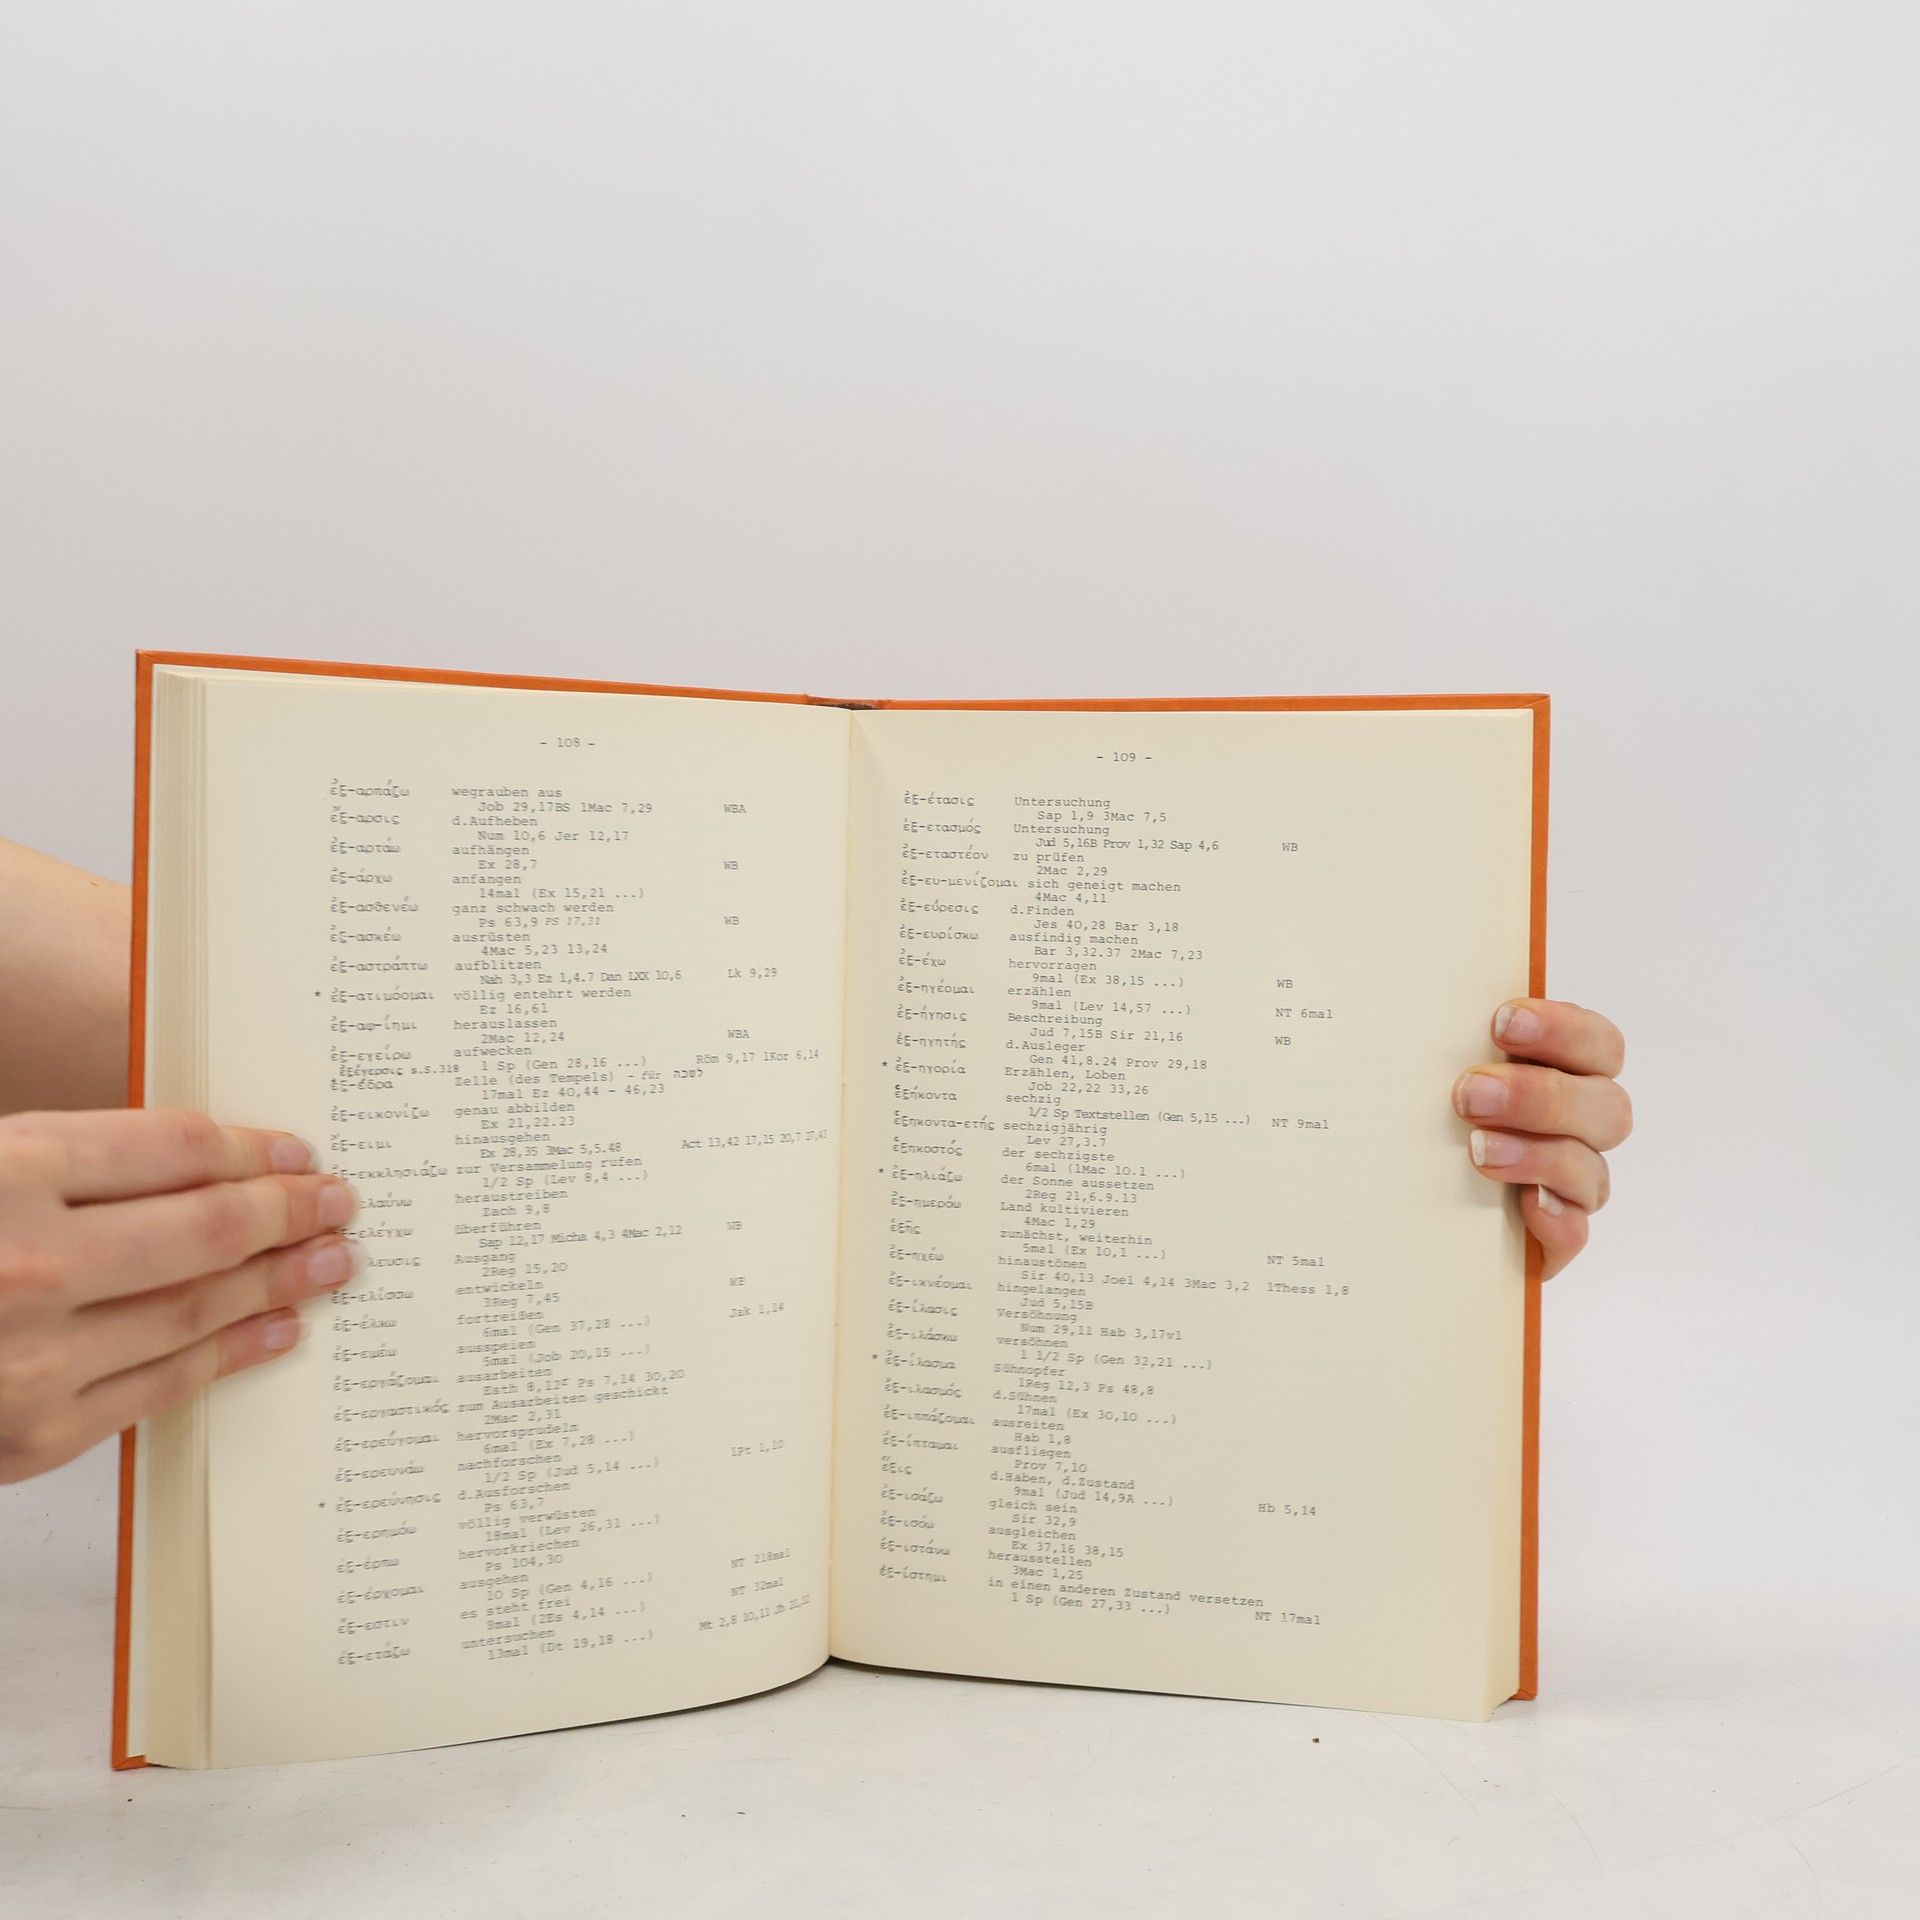 - 108 -
ἐξ-αρπάζω wegrauben aus
Job 29,17BS 1Mac 7,29 WBA
ἔξ-αρσις d.Aufheben
Num 10,6 Jer 12,17
ἐξ-αρτάω aufhängen
Ex 28,7 WB
ἐξ-άρχω anfangen
14mal (Ex 15,21 ...)
ἐξ-ασθενέω ganz schwach werden
Ps 63,9 PS 17,31 WB
ἐξ-ασκέω ausrüsten
4Mac 5,23 13,24
ἐξ-αστράπτω aufblitzen
Nah 3,3 Ez 1,4.7 Dan LXX 10,6 Lk 9,29
* ἐξ-ατιμόομαι völlig entehrt werden
Ez 16,61
ἐξ-αφ-ίημι herauslassen
2Mac 12,24 WBA
ἐξ-εγείρω aufwecken
1 Sp (Gen 28,16 ...) Röm 9,17 1Kor 6,14
ἐξέγερσις s.S.318
ἐξ-έδρα Zelle (des Tempels) - für לשכה
17mal Ez 40,44 - 46,23
ἐξ-εικονίζω genau abbilden
Ex 21,22.23
ἔξ-ειμι hinausgehen
Ex 28,35 3Mac 5,5.48 Act 13,42 17,15 20,7 27,43
ἐξ-εκκλησιάζω zur Versammelung rufen
1/2 Sp (Lev 8,4 ...)
ελαύνω heraustreiben
Zach 9,8
ελέγχω überführen
Sap 12,17 Micha 4,3 4Mac 2,12 WB
λευσις Ausgang
2Reg 15,20
ἐξ-ελίσσω entwickeln
3Reg 7,45 WB
ἐξ-έλκω fortreißen
6mal (Gen 37,28 ...) Jak 1,14
ἐξ-εμέω ausspeien
5mal (Job 20,15 ...)
ἐξ-εργάζομαι ausarbeiten
Esth 8,12r Ps 7,14 30,20
ἐξ-εργαστικός zum Ausarbeiten geschickt
2Mac 2,31
ἐξ-ερεύγομαι hervorsprudeln
6mal (Ex 7,28 ...)
ἐξ-ερευνάω nachforschen
1/2 Sp (Jud 5,14 ...) 1Pt 1,10
* ἐξ-ερεύνησις d.Ausforschen
Ps 63,7
ἐξ-ερημόω völlig verwüsten
18mal (Lev 26,31 ...)
ἐξ-έρπω hervorkriechen
Ps 104,30
ἐξ-έρχομαι ausgehen
10 Sp (Gen 4,16 ...) NT 218mal
ἔξ-εστιν es steht frei
9mal (2Es 4,14 ...) NT 32mal
ἐξ-ετάζω untersuchen
13mal (Dt 19,18 ...) Mt 2,8 10,11 Jh 21,12
- 109 -
ἐξ-έτασις Untersuchung
Sap 1,9 3Mac 7,5
ἐξ-ετασμός Untersuchung
Jud 5,16B Prov 1,32 Sap 4,6 WB
ἐξ-εταστέον zu prüfen
2Mac 2,29
ἐξ-ευ-μενίζομαι sich geneigt machen
4Mac 4,11
ἐξ-εύρεσις d.Finden
Jes 40,28 Bar 3,18
ἐξ-ευρίσκω ausfindig machen
Bar 3,32.37 2Mac 7,23
ἐξ-έχω hervorragen
9mal (Ex 38,15 ...) WB
ἐξ-ηγέομαι erzählen
9mal (Lev 14,57 ...) NT 6mal
ἐξ-ήγησις Beschreibung
Jud 7,15B Sir 21,16 WB
ἐξ-ηγητής d.Ausleger
Gen 41,8.24 Prov 29,18
* ἐξ-ηγορία Erzählen, Loben
Job 22,22 33,26
ἑξήκοντα sechzig
1/2 Sp Textstellen (Gen 5,15 ...) NT 9mal
ἑξηκοντα-ετής sechzigjährig
Lev 27,3.7
ἑξηκοστός der sechzigste
6mal (1Mac 10.1 ...)
* ἐξ-ηλιάζω der Sonne aussetzen
2Reg 21,6.9.13
ἐξ-ημερόω Land kultivieren
4Mac 1,29
ἑξῆς zunächst, weiterhin
5mal (Ex 10,1 ...) NT 5mal
ἐξ-ηχέω hinaustönen
Sir 40,13 Joel 4,14 3Mac 3,2 1Thess 1,8
ἐξ-ικνέομαι hingelangen
Jud 5,15B
ἐξ-ίλασις Versöhnung
Num 29,11 Hab 3,17vl
ἐξ-ιλάσκω versöhnen
1 1/2 Sp (Gen 32,21 ...)
* ἐξ-ίλασμα Sühnopfer
1Reg 12,3 Ps 48,8
ἐξ-ιλασμός d.Sühnen
17mal (Ex 30,10 ...)
ἐξ-ιππάζομαι ausreiten
Hab 1,8
ἐξ-ίπταμαι ausfliegen
Prov 7,10
ἕξις d.Haben, d.Zustand
9mal (Jud 14,9A ...) Hb 5,14
ἐξ-ισάζω gleich sein
Sir 32,9
ἐξ-ισόω ausgleichen
Ex 37,16 38,15
ἐξ-ιστάνω herausstellen
3Mac 1,25
ἐξ-ίστημι in einen anderen Zustand versetzen
1 Sp (Gen 27,33 ...) NT 17mal